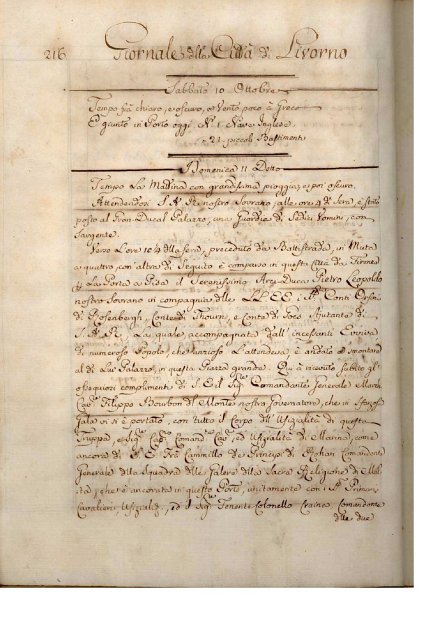 216 Giornale della Città di Livorno
Sabbato 10 Ottobre
Tempo frà chiaro, e oscuro, e Vento poco à Greco
E giunto in Porto oggi N.º 1 Nave Inglese
e 21 piccoli Bastimenti
Domenica 11 Detto
Tempo La Mattina con grandissima pioggia, e poi oscuro.
Attendendosi S. A. R. nostro Sovrano, alle ore 4 di sera, è stato
posto al Gran Ducal Palazzo, una Guardia di Sedici Uomini, con
Sargente.
Verso L'ore 10¼ della sera, preceduto da Battistrada, in Muta
a quattro, con altra di Seguito è comparso in questa Città da Firenze
p. La Porta a Pisa il Serenissimo Arci Duca Pietro Leopoldo
nostro Sovrano in compagnia delle LL. EE. i SS.ri Conti Orsini
di Rosenbergh, Conte di Thourn, e Conte di Aiutante di
S. A. R., La quale, accompagnata dall'incessanti Evviva
di numeroso Popolo, che curioso L'attendeva, è andato à smontare
al di Lui Palazzo, in questa Piazza grande. Quì à ricevuto subito gl'
ossequiosi complimenti di S. E. il Sig.re Comandante Generale Marche.
Cav.re Filippo Bourbon del Monte nostro Governatore, che in
Gala vi si è portato, con tutto il Corpo dell'Ufizialità di questa
Truppa, e Sig.re Cap.no Comand. Cap.ni, ed Ufizialità di Marina, come
ancora di S. E. Frà Cammillo de Principi di Rohan Comandante
Generale della Squadra delle Galere della Sacra Religione di Mal-
ta, che è ancorata in questo Porto, unitamente con i SS.ri
Cavalieri, Ufiziali, ed il Sig.re Tenente Colonello Comandante
delle due